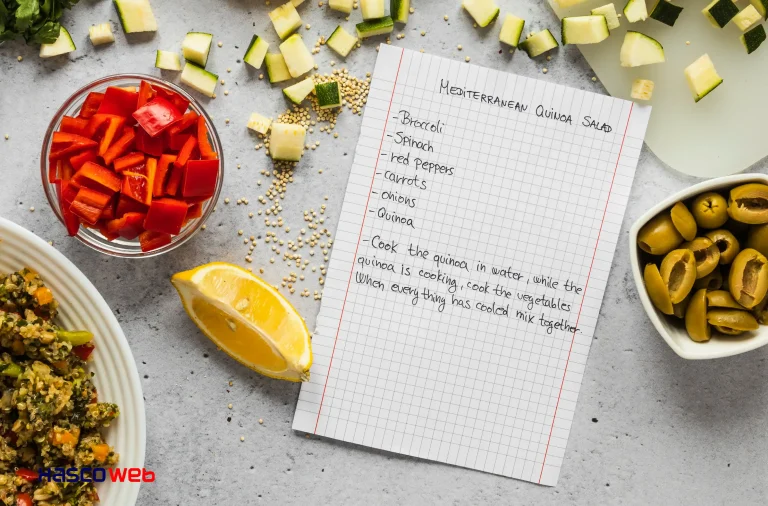 MEDITERRANEAN QUINOA SALAD
- Broccoli
- Spinach
- red peppers
- carrots
- onions
- Quinoa
- Cook the quinoa in water, while the
quinoa is cooking, cook the vegetables
When everything has cooled mix together.
HASCOWEB